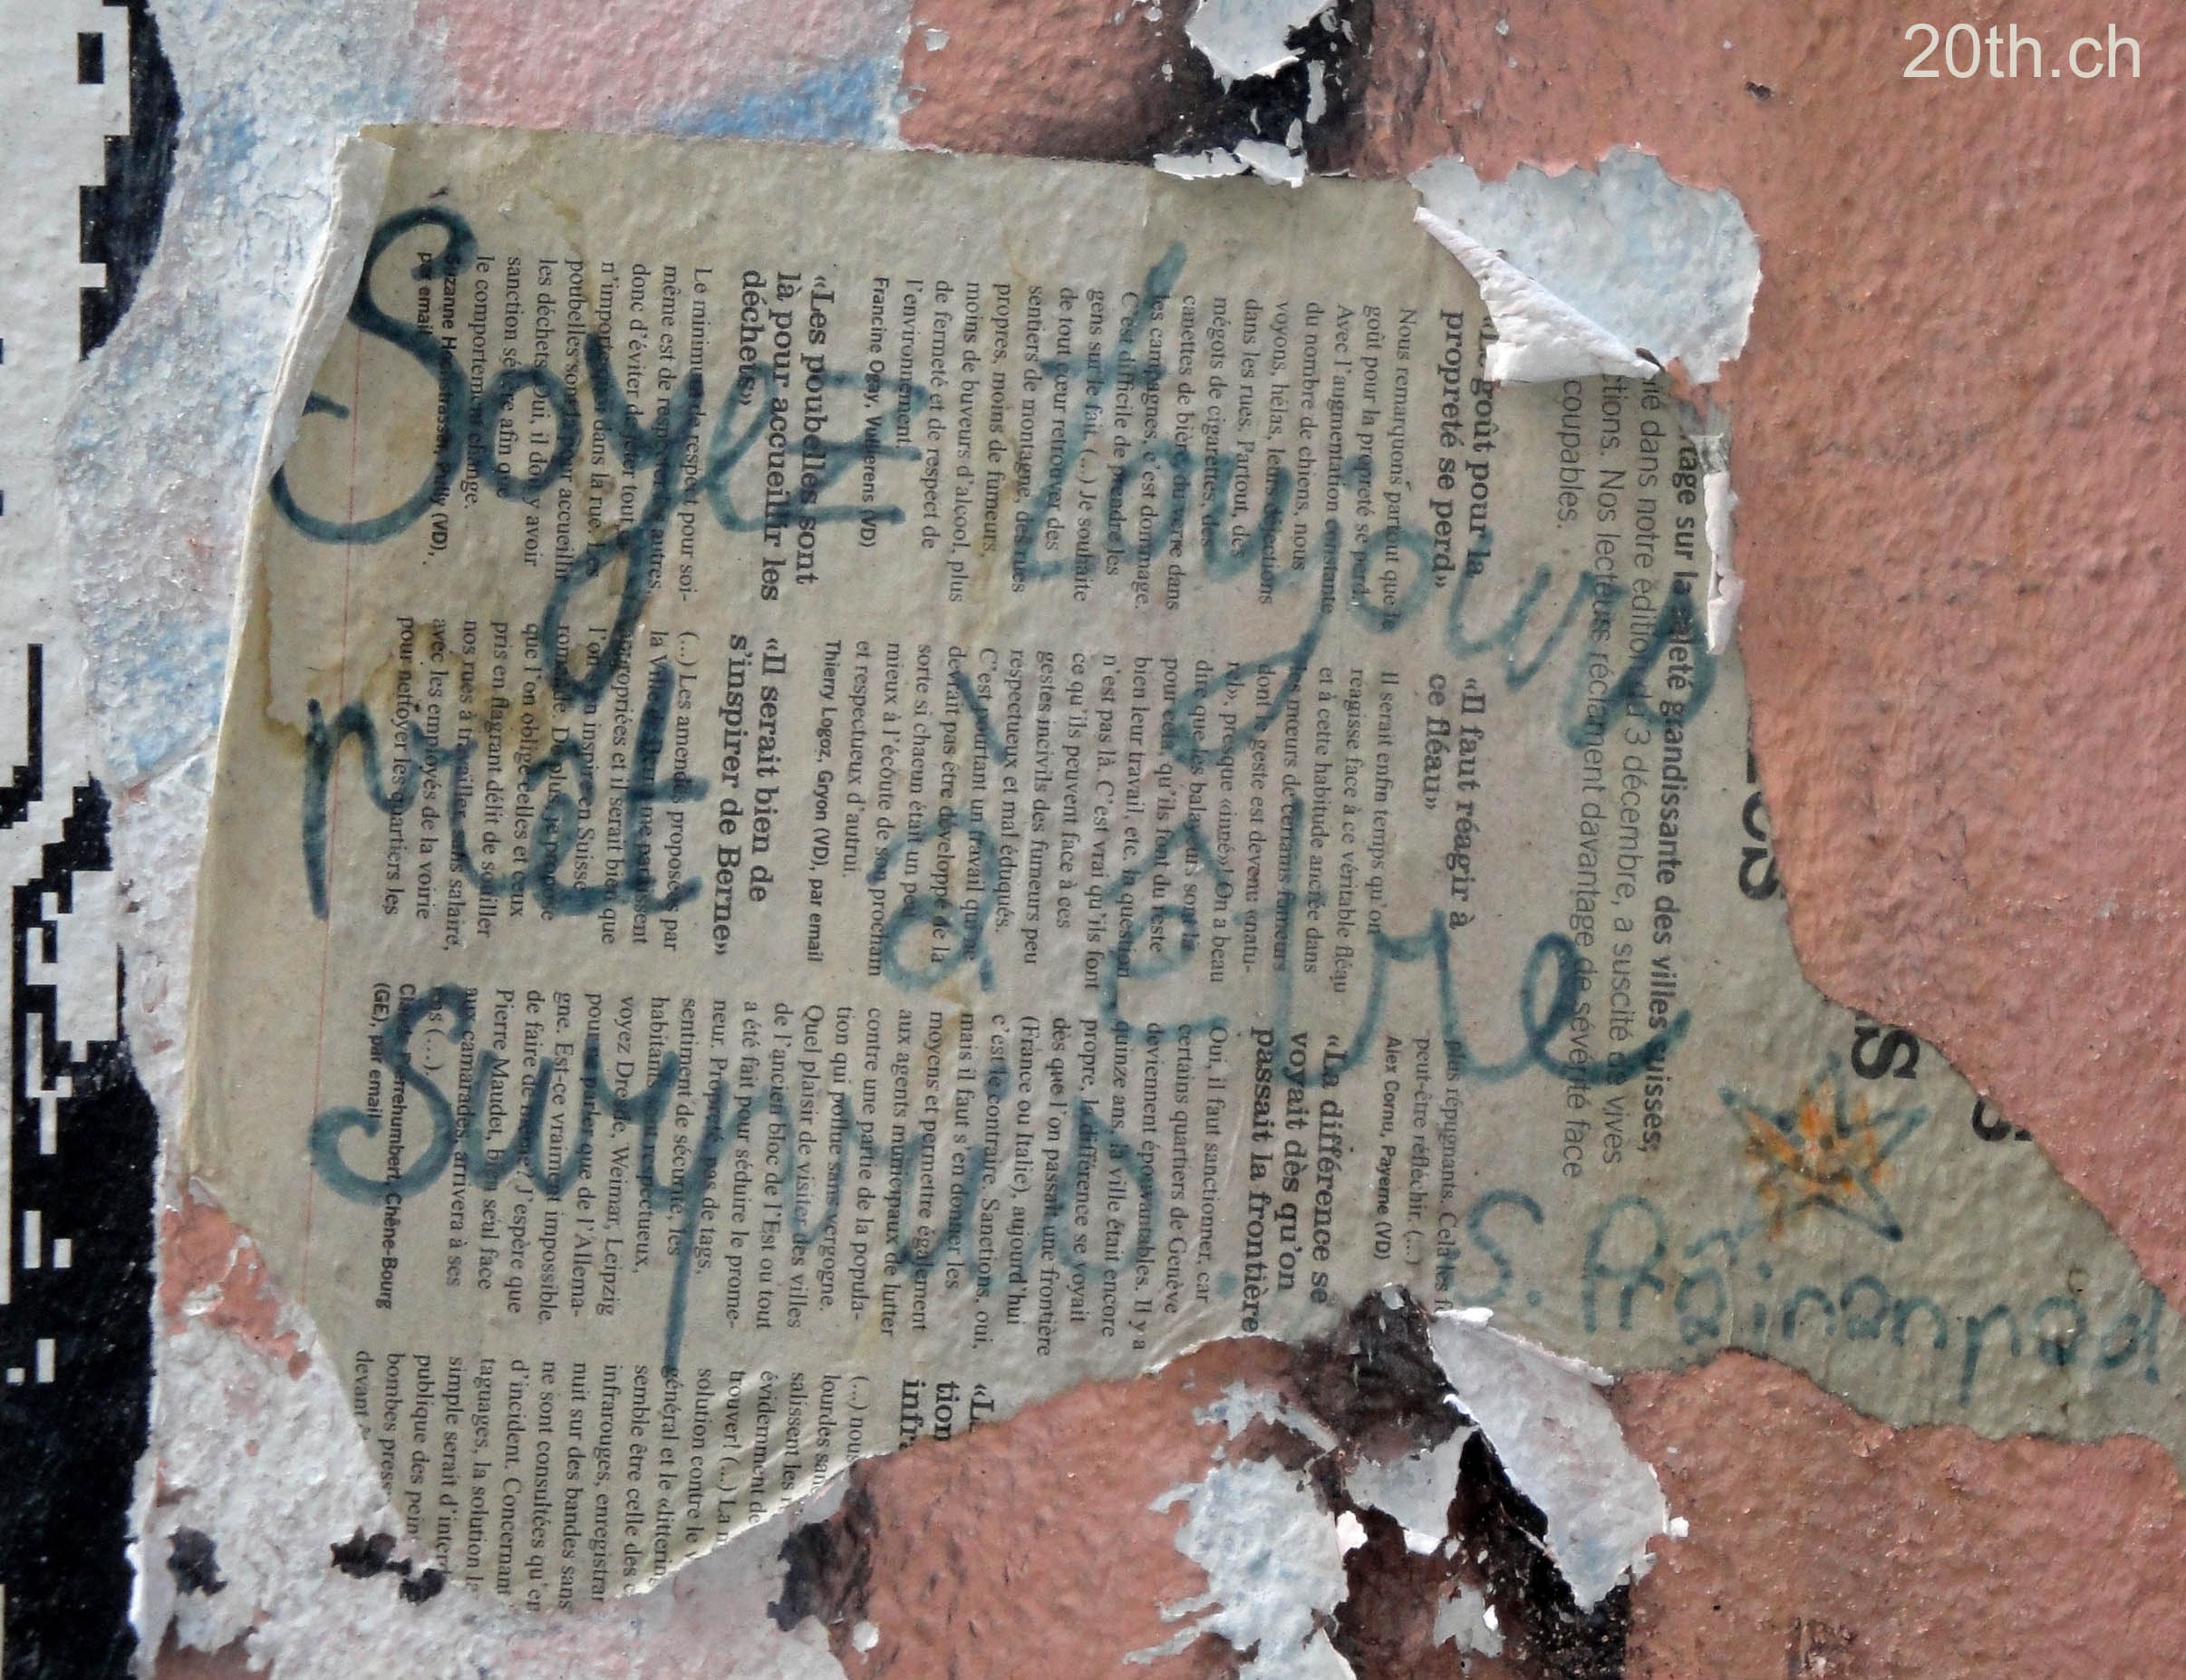 20th.ch
Soyez toujours
prêt à être
Surpris.
S.
sur la saleté grandissante des villes suisses,
dans notre édition du 3 décembre, a suscité de vives
Nos lecteurs réclament davantage de sévérité face
coupables.
goût pour la
propreté se perd»
Nous remarquons partout que le
goût pour la propreté se perd.
Avec l'augmentation constante
du nombre de chiens, nous
voyons, hélas, leurs déjections
dans les rues. Partout, des
mégots de cigarettes, des
canettes de bière, du verre dans
les campagnes, c'est dommage.
C'est difficile de prendre les
gens sur le fait. (...) Je souhaite
de tout cœur retrouver des
sentiers de montagne, des rues
propres, moins de fumeurs,
moins de buveurs d'alcool, plus
de fermeté et de respect de
l'environnement.
Francine Ogay, Vullierens (VD)
«Les poubelles sont
là pour accueillir les
déchets»
Le minimum de respect pour soi-
même est de respecter les autres,
donc d'éviter de jeter tout,
n'importe où dans la rue. Les
poubelles sont là pour accueillir
les déchets. Oui, il doit y avoir
sanction sévère afin que
le comportement change.
Suzanne Pully (VD),
par email
«Il faut réagir à
ce fléau»
Il serait enfin temps qu'on
réagisse face à ce véritable fléau
et à cette habitude ancrée dans
les mœurs de certains fumeurs
dont le geste est devenu «natu-
rel», presque «inné»! On a beau
dire que les balayeurs sont là
pour cela, qu'ils font du reste
bien leur travail, etc. la question
n'est pas là. C'est vrai qu'ils font
ce qu'ils peuvent face à ces
gestes incivils des fumeurs peu
respectueux et mal éduqués.
C'est pourtant un travail qui ne
devrait pas être développé de la
sorte si chacun était un peu
mieux à l'écoute de son prochain
et respectueux d'autrui.
Thierry Logoz, Gryon (VD), par email
«Il serait bien de
s'inspirer de Berne»
(...) Les amendes proposées par
la Ville de Berne me paraissent
appropriées et il serait bien que
l'on s'en inspire en Suisse
romande. De plus, je propose
que l'on oblige celles et ceux
pris en flagrant délit de souiller
nos rues à travailler, sans salaire,
avec les employés de la voirie
pour nettoyer les quartiers les
plus répugnants. Cela les f
peut-être réfléchir. (...)
Alex Cornu, Payerne (VD)
«La différence se
voyait dès qu'on
passait la frontière
Oui, il faut sanctionner, car
certains quartiers de Genève
deviennent épouvantables. Il y a
quinze ans, la ville était encore
propre, la différence se voyait
dès que l'on passait une frontière
(France ou Italie), aujourd'hui
c'est le contraire. Sanctions, oui,
mais il faut s'en donner les
moyens et permettre également
aux agents municipaux de lutter
contre une partie de la popula-
tion qui pollue sans vergogne.
Quel plaisir de visiter des villes
de l'ancien bloc de l'Est où tout
a été fait pour séduire le prome-
neur. Propreté, pas de tags,
sentiment de sécurité, les
habitants sont respectueux,
voyez Dresde, Weimar, Leipzig
pour ne parler que de l'Allema-
gne. Est-ce vraiment impossible
de faire de même? J'espère que
Pierre Maudet, bien seul face
aux camarades, arrivera à ses
fins (...).
Perrehumbert, Chêne-Bourg
(GE), par email
«L
tion
infra
(...) nous
lourdes san
salissent les
évidemment de
trouver! (...) La
solution contre le v
général et le «littering
semble être celle des c
infrarouges, enregistrar
nuit sur des bandes sans
ne sont consultées qu'en
d'incident. Concernant
taguages, la solution le
simple serait d'inter
publique des pein
bombes press
devant